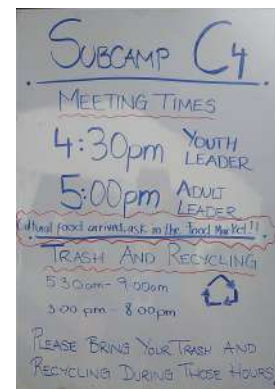 SUBCAMP C4
MEETING TIMES
4:30pm YOUTH LEADER
5:00pm ADULT LEADER
Cultural food arrived, ask in the Food Market!!
TRASH AND RECYCLING
5:30am - 9:00am
3:00 pm - 8:00pm
PLEASE BRING YOUR TRASH AND
RECYCLING DURING THOSE HOURS